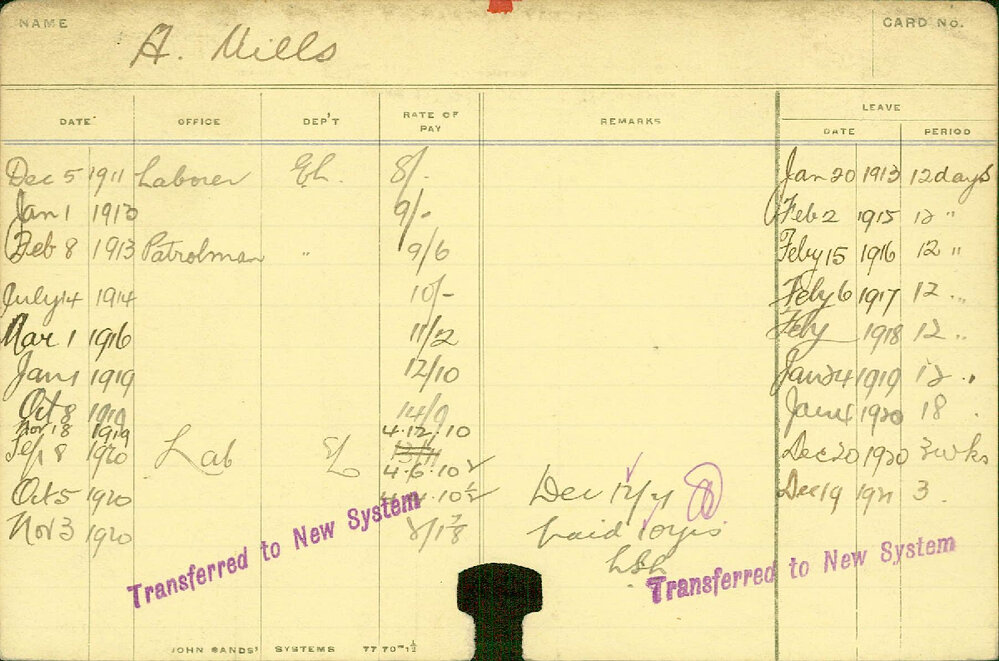 NAME
A. Mills
CARD No.
DATE OFFICE DEP'T RATE OF PAY REMARKS LEAVE
DATE PERIOD
Dec 5 1911 Laborer EL. 8/- Jan 20 1913 12 days
Jan 1 1913 9/- Feb 2 1915 12 "
Feb 8 1913 Patrolman " 9/6 Feby 15 1916 12 "
July 14 1914 10/- Feby 6 1917 12 "
Mar 1 1916 11/2 Feby 1918 12 "
Jan 1 1919 12/10 Jan 24 1919 12 "
Oct 8 1919 14/9 Jan 4 1920 18 "
Nov 18 1919 4.12.10
8 1920 Lab EL 4.6.10½ Dec 20 1920 3wks
Oct 5 1920 10½ Dec 19 1921 3
Nov 3 1920 Paid 10yrs
LSL
Transferred to New System
Transferred to New System
JOHN SANDS' SYSTEMS